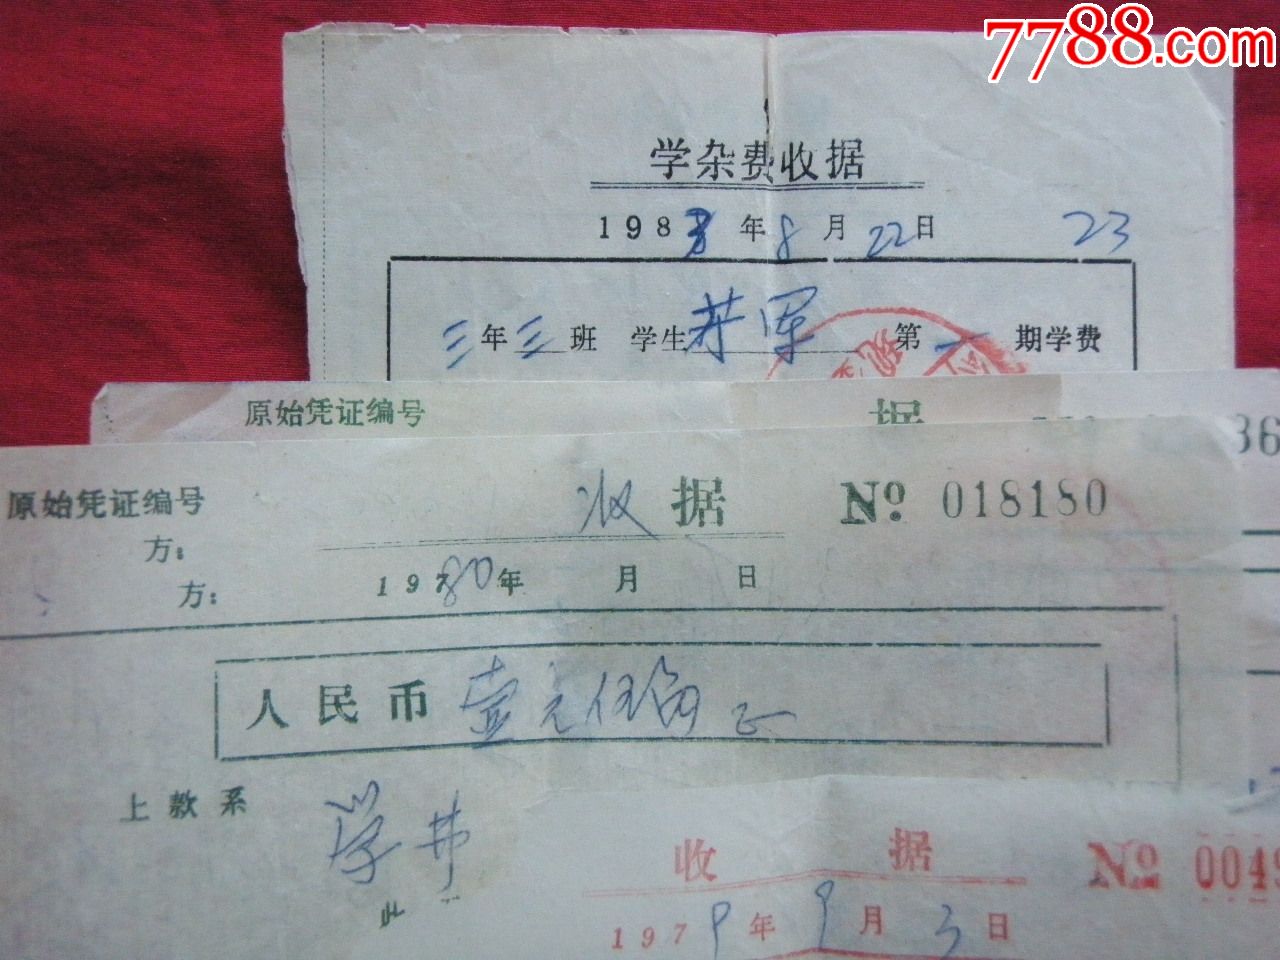 7788.com
学杂费收据
1983年8月22日 23
三年三班 学生 军 第一期学费
原始凭证编号 据 36
原始凭证编号 收据 № 018180
方:
1980年 月 日
方:
人民币 壹元伍角正
上款系 学费
收据 № 0049
1979年9月3日